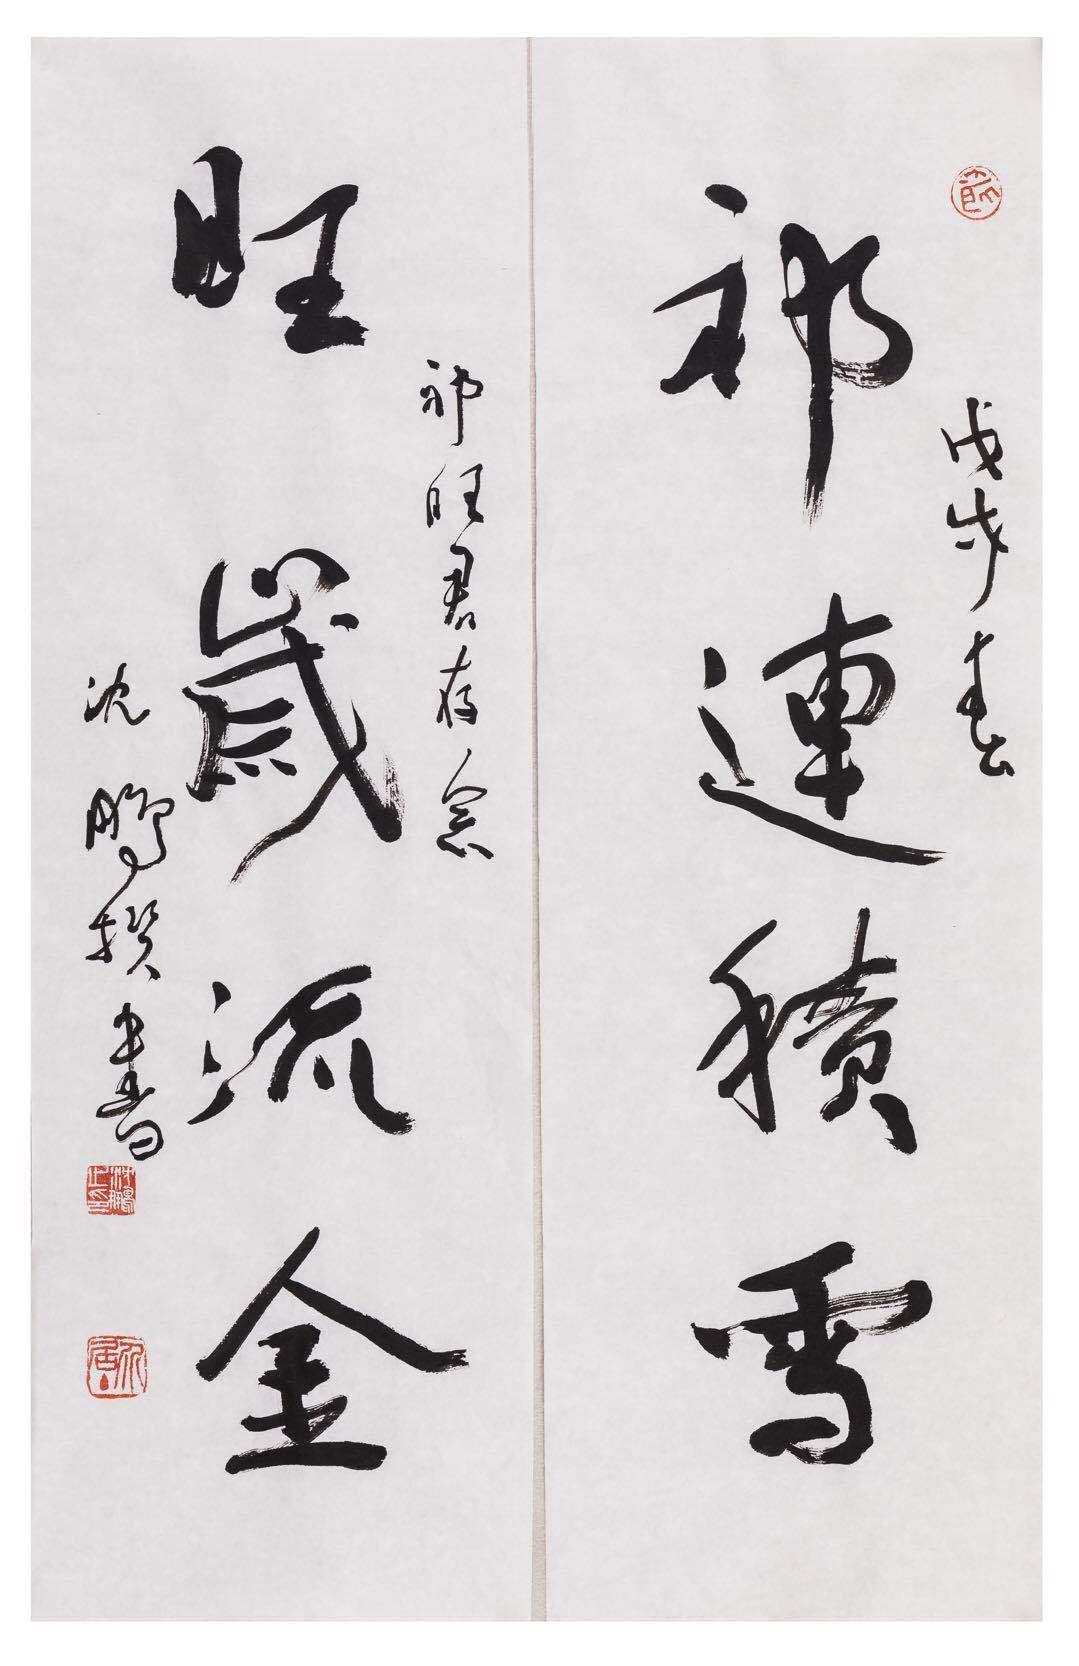 祁連積雪
戊戌春
旺歲流金
祁旺君存念
沈鵬撰书書